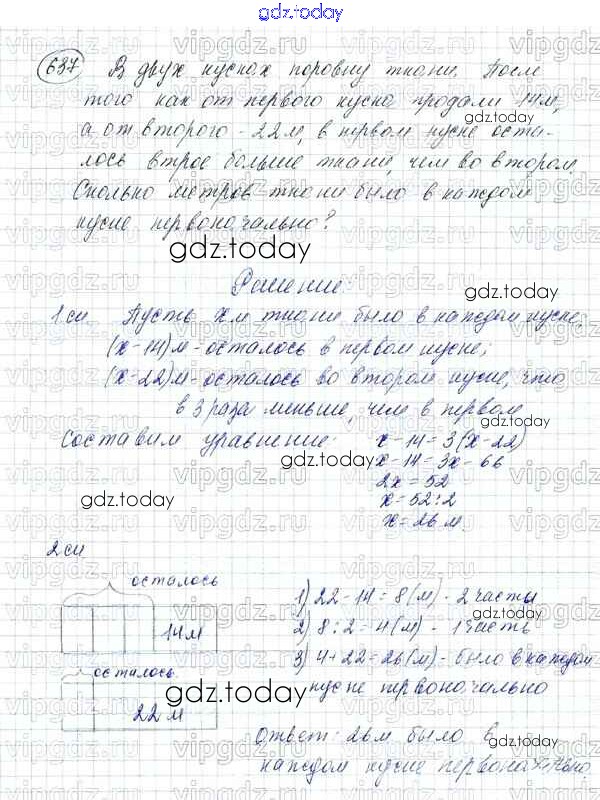 gdz.today
637 В двух кусках поровну ткани. После
того как от первого куска продали 14м,
а от второго - 22м, в первом куске оста-
лось втрое больше ткани, чем во втором.
Сколько метров ткани было в каждом
куске первоначально?
gdz.today
Решение:
gdz.today
1 сп. Пусть x м ткани было в каждом куске,
(x-14)м - осталось в первом куске;
(x-22)м - осталось во втором куске, что
в 3 раза меньше, чем в первом
Составим уравнение: x-14=3(x-22)
gdz.today
x-14=3x-66
2x=52
gdz.today
x=52:2
x=26 м.
2 сп
осталось
1) 22-14=8(м) - 2 части
14м
2) 8:2=4(м) - 1 часть
gdz.today
осталось
3) 4+22=26(м) - было в каждом
gdz.today
куске первоначально
22 м
Ответ: 26м было в
gdz.today
каждом куске первоначально.
vipgdz.ru